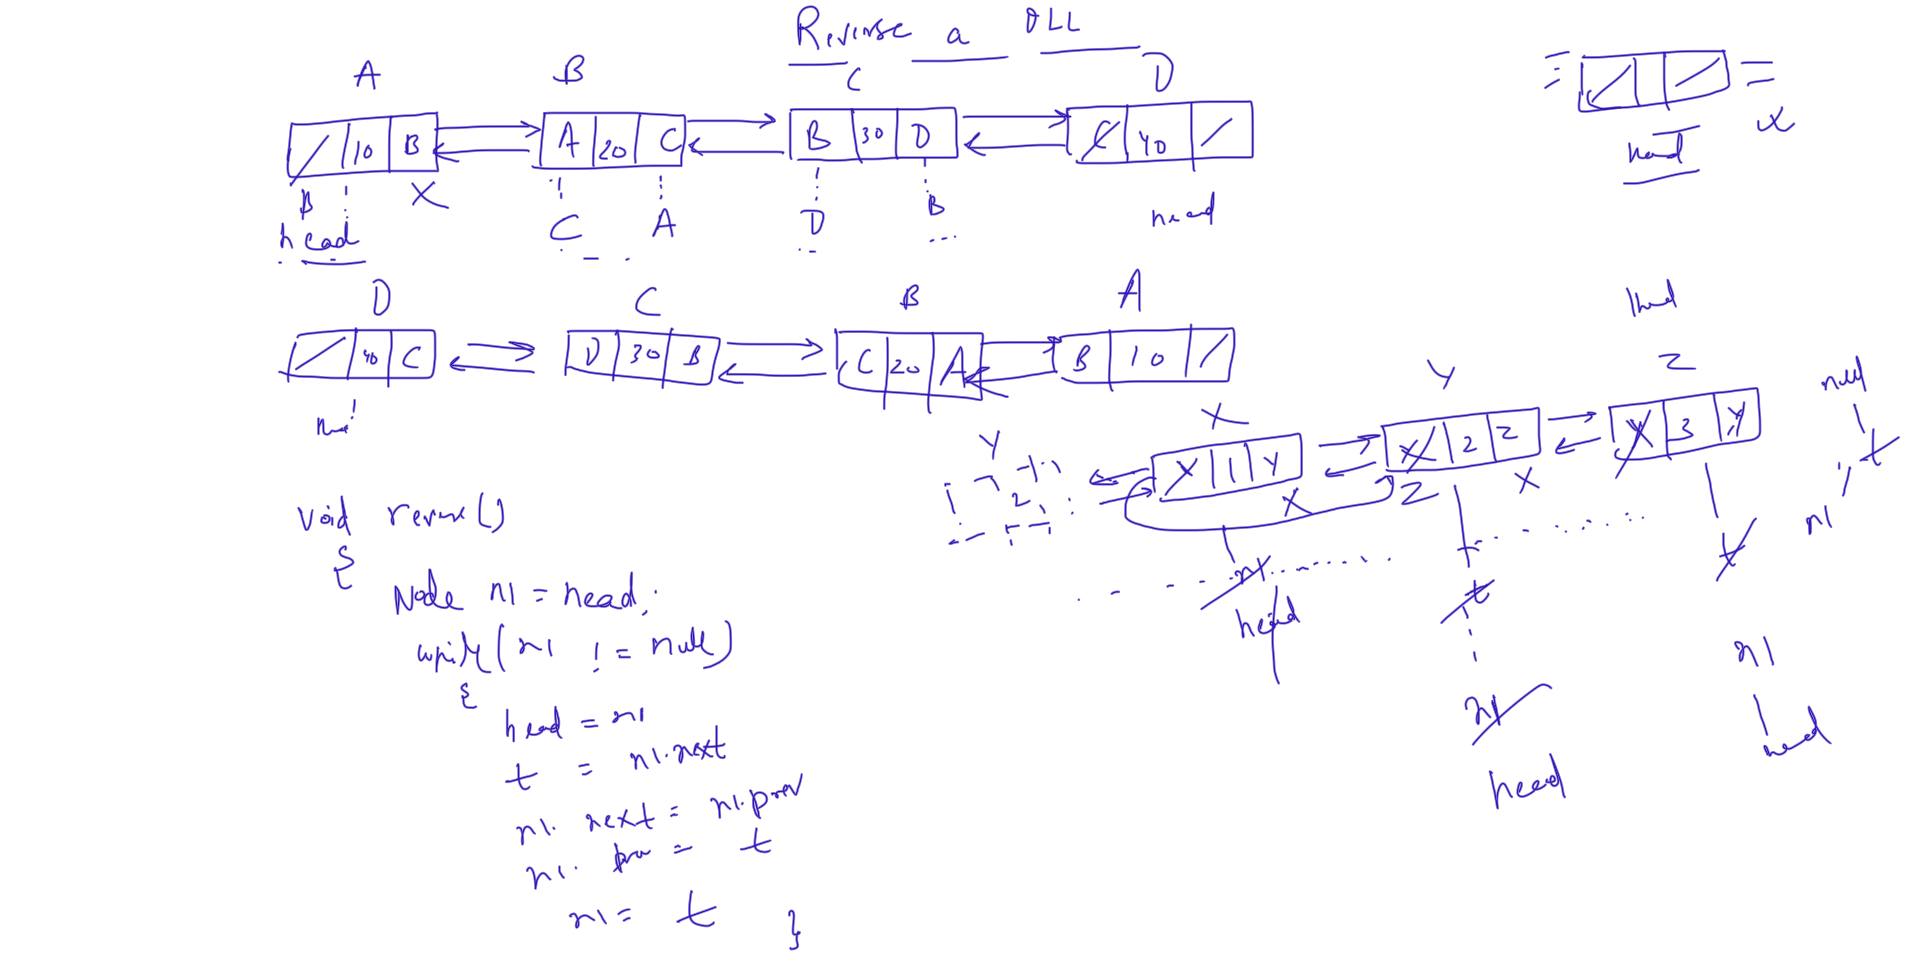 Reverse a DLL
A B C D
/ 10 B A 20 C B 30 D C 40 /
B X C A D B head
head
head
D C B A
/ 40 C D 30 B C 20 A B 10 /
head
X Y Z null
Y X 1 Y X 2 Z X 3 Y t
2 X Z X n1
n1 t t
head
n1 n1
head head
void reverse()
{
Node n1 = head;
while(n1 != null)
{
head = n1
t = n1.next
n1. next = n1.prev
n1. prev = t
n1 = t }